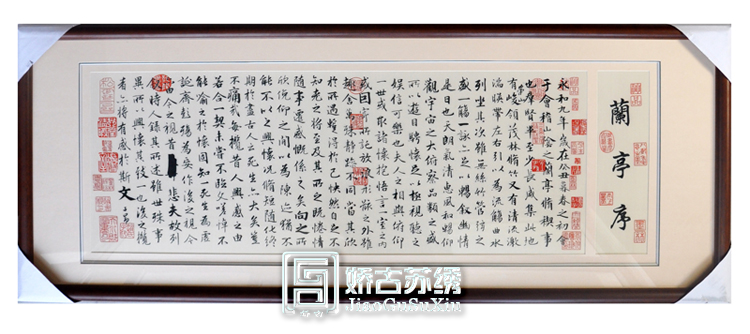 蘭亭序
永和九年歲在癸丑暮春之初會
于會稽山陰之蘭亭脩稧事
也羣賢畢至少長咸集此地
有峻領茂林脩竹又有清流激
湍暎帶左右引以為流觴曲水
列坐其次雖無絲竹管弦之
盛一觴一詠亦足以暢敘幽情
是日也天朗氣清惠風和暢仰
觀宇宙之大俯察品類之盛
所以遊目騁懷足以極視聽之
娛信可樂也夫人之相與俯仰
一世或取諸懷抱悟言一室之內
或因寄所託放浪形骸之外雖
趣舍萬殊靜躁不同當其欣
於所遇蹔得於己怏然自足不
知老之將至及其所之既惓情
隨事遷感慨係之矣向之所
欣俛仰之閒以為陳迹猶不
能不以之興懷況脩短隨化終
期於盡古人云死生亦大矣豈
不痛哉每攬昔人興感之由
若合一契未嘗不臨文嗟悼不
能喻之於懷固知一死生為虛
誕齊彭殤為妄作後之視今
亦由今之視昔悲夫故列
敘時人錄其所述雖世殊事
異所以興懷其致一也後之攬
者亦將有感於斯文
娇古苏绣
JiaoGuSuXiu